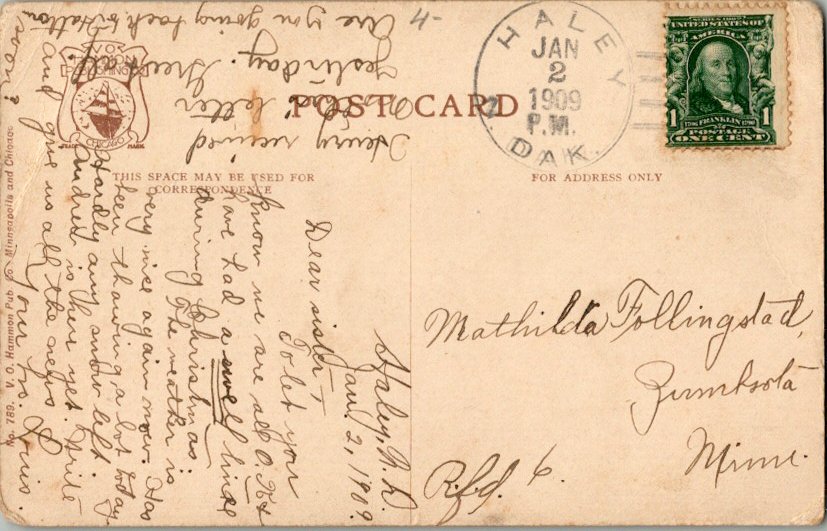 POST CARD
THIS SPACE MAY BE USED FOR
CORRESPONDENCE
FOR ADDRESS ONLY
HALEY
JAN
2
1909
P.M.
N. DAK.
SERIES 1902
UNITED STATES OF
AMERICA
1706 FRANKLIN 1790
1 POSTAGE 1
ONE CENT
Mathilda Follingstad,
Zumbrota
Minn.
Rfd. 6.
Haley, N. D.
Jan. 2, 1909.
Dear sister,
To let you
know we are all O.K.
have had a swell time
during Christmas.
The weather is
very nice again now. Has
been thawing a lot today
Hardly any snow left
is there yet. Write
and give us all the news
soon?
Your br.
Henry received
letter
yesterday.
Are you going back to
4-
CHICAGO
TRADE MARK
No. 789. V. O. Hammon Pub. Co. Minneapolis and Chicago